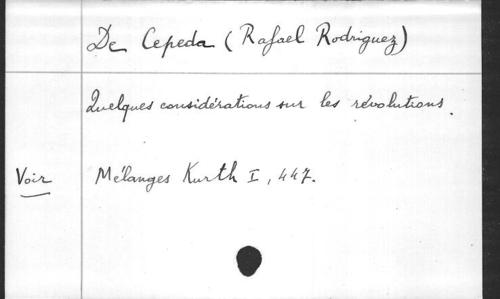 De Cepeda (Rafael Rodriguez)
Quelques considérations sur les révolutions.
Voir Mélanges Kurth I, 447.